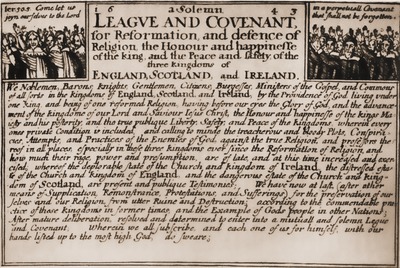 Ier: 50.5 Come let us
joyn ourselves to the Lord
16 a Solemn 43
LEAGVE AND COVENANT,
for Reformation, and defence of
Religion, the Honour and happinesse
of the king, and the Peace and safety of the
three kingdoms of
ENGLAND, SCOTLAND, and IRELAND.
in a perpetuall Covenant
that shall not be forgotten.
We Noblemen, Barons, knights, Gentlemen, Citizens, Burgesses, Ministers of the Gospel, and Commons
of all sorts in the kingdoms of England, Scotland, and Ireland, by the Providence of God living under
one King, and being of one reformed Religion, having before our eyes the Glory of God, and the advance-
ment of the kingdome of our Lord and Saviour Iesus Christ, the Honour and happinesse of the kings Ma
iesty and his posterity, and the true publique Liberty, Safety, and Peace of the kingdoms, wherein every
ones private Condition is included, and calling to minde the treacherous and bloody Plots, Conspira-
cies, Attempts, and Practices of the Enemies of God, against the true Religion, and professors the-
reof in all places, especially in these three kingdoms ever since the Reformation of Religion, and
how much their rage, power and presumption, are of late, and at this time increased and exer-
cised; whereof the deplorable state of the Church and kingdom of Ireland, the distressed esta-
te of the Church and kingdom of England, and the dangerous estate of the Church and king-
dom of Scotland, are present and publique Testimonies; We have now at last, after other
means of Supplication, Remonstrance, Protestations, and Sufferings, for the preservation of our
selves and our Religion, from utter Ruine and Destruction; according to the commendable pra
ctice of these kingdoms in former times, and the Example of Gods people in other Nations;
After mature deliberation, resolved and determined to enter into a mutuall and solemn League
and Covenant. Wherein we all subscribe, and each one of us for himself, with our
hands lifted up to the most high God, do sweare;